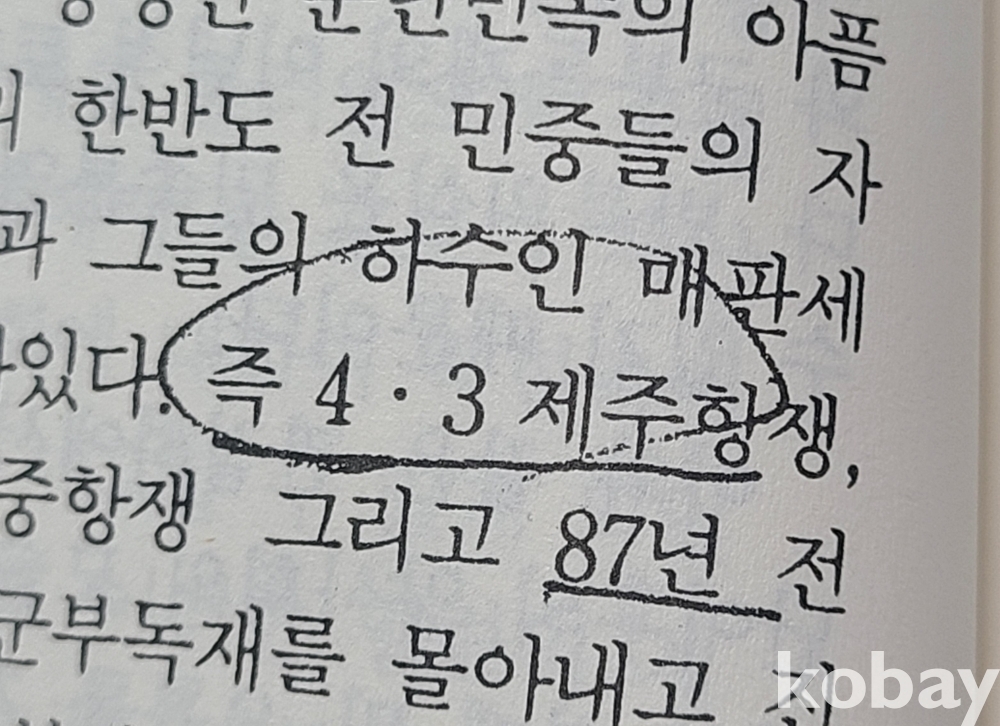 분단민족의 아픔
한반도 전 민중들의 자
과 그들의 하수인 매판세
있다. 즉 4·3 제주항쟁,
중항쟁 그리고 87년 전
군부독재를 몰아내고
kobay